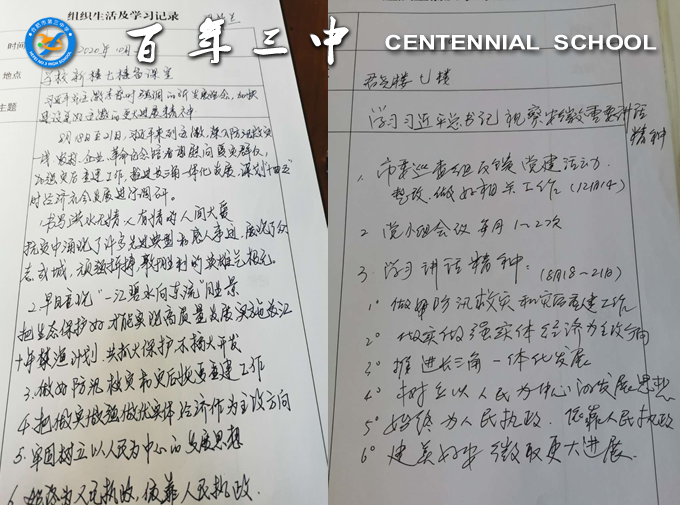 组织生活及学习记录
百年三中
CENTENNIAL SCHOOL
合肥市第三中学
HEFEI NO.3 HIGH SCHOOL
时间
2020年10月
地点
学校新楼七楼备课室
主题
建设
8月18日至21日,习近平来到安徽,深入防汛救灾
一线、农村、企业、革命纪念馆看望慰问受灾群众,
对经济社会发展进行调研。
书写洪水无情人有情的人间大爱
抗灾中涌现了许多先进典型和感人事迹,展现了
志成城,顽强拼搏,敢于胜利的英雄气概。
2.早日重现“一江碧水向东流”胜景
把生态保护好才能实现高质量发展 实施长江
十年禁渔计划 共抓大保护 不搞大开发
3.做好防汛救灾和灾后恢复重建工作
4.把做实做强做优实体经济作为主攻方向
5.牢固树立以人民为中心的发展思想
6.始终为人民执政,依靠人民执政.
七楼
学习习近平总书记视察安徽重要讲话
精神
1.市委巡查组反馈党建活动
整改.做好相关工作(12月14)
2 党小组会议 每月1~2次
3 学习讲话精神:(8月18-21日)
1° 做好防汛救灾和灾后重建工作
2° 做实做强实体经济为主攻方向
3° 推进长三角一体化发展
4° 树立以人民为中心的发展思想
5° 始终为人民执政、依靠人民执政
6° 建美好安徽取更大进展.